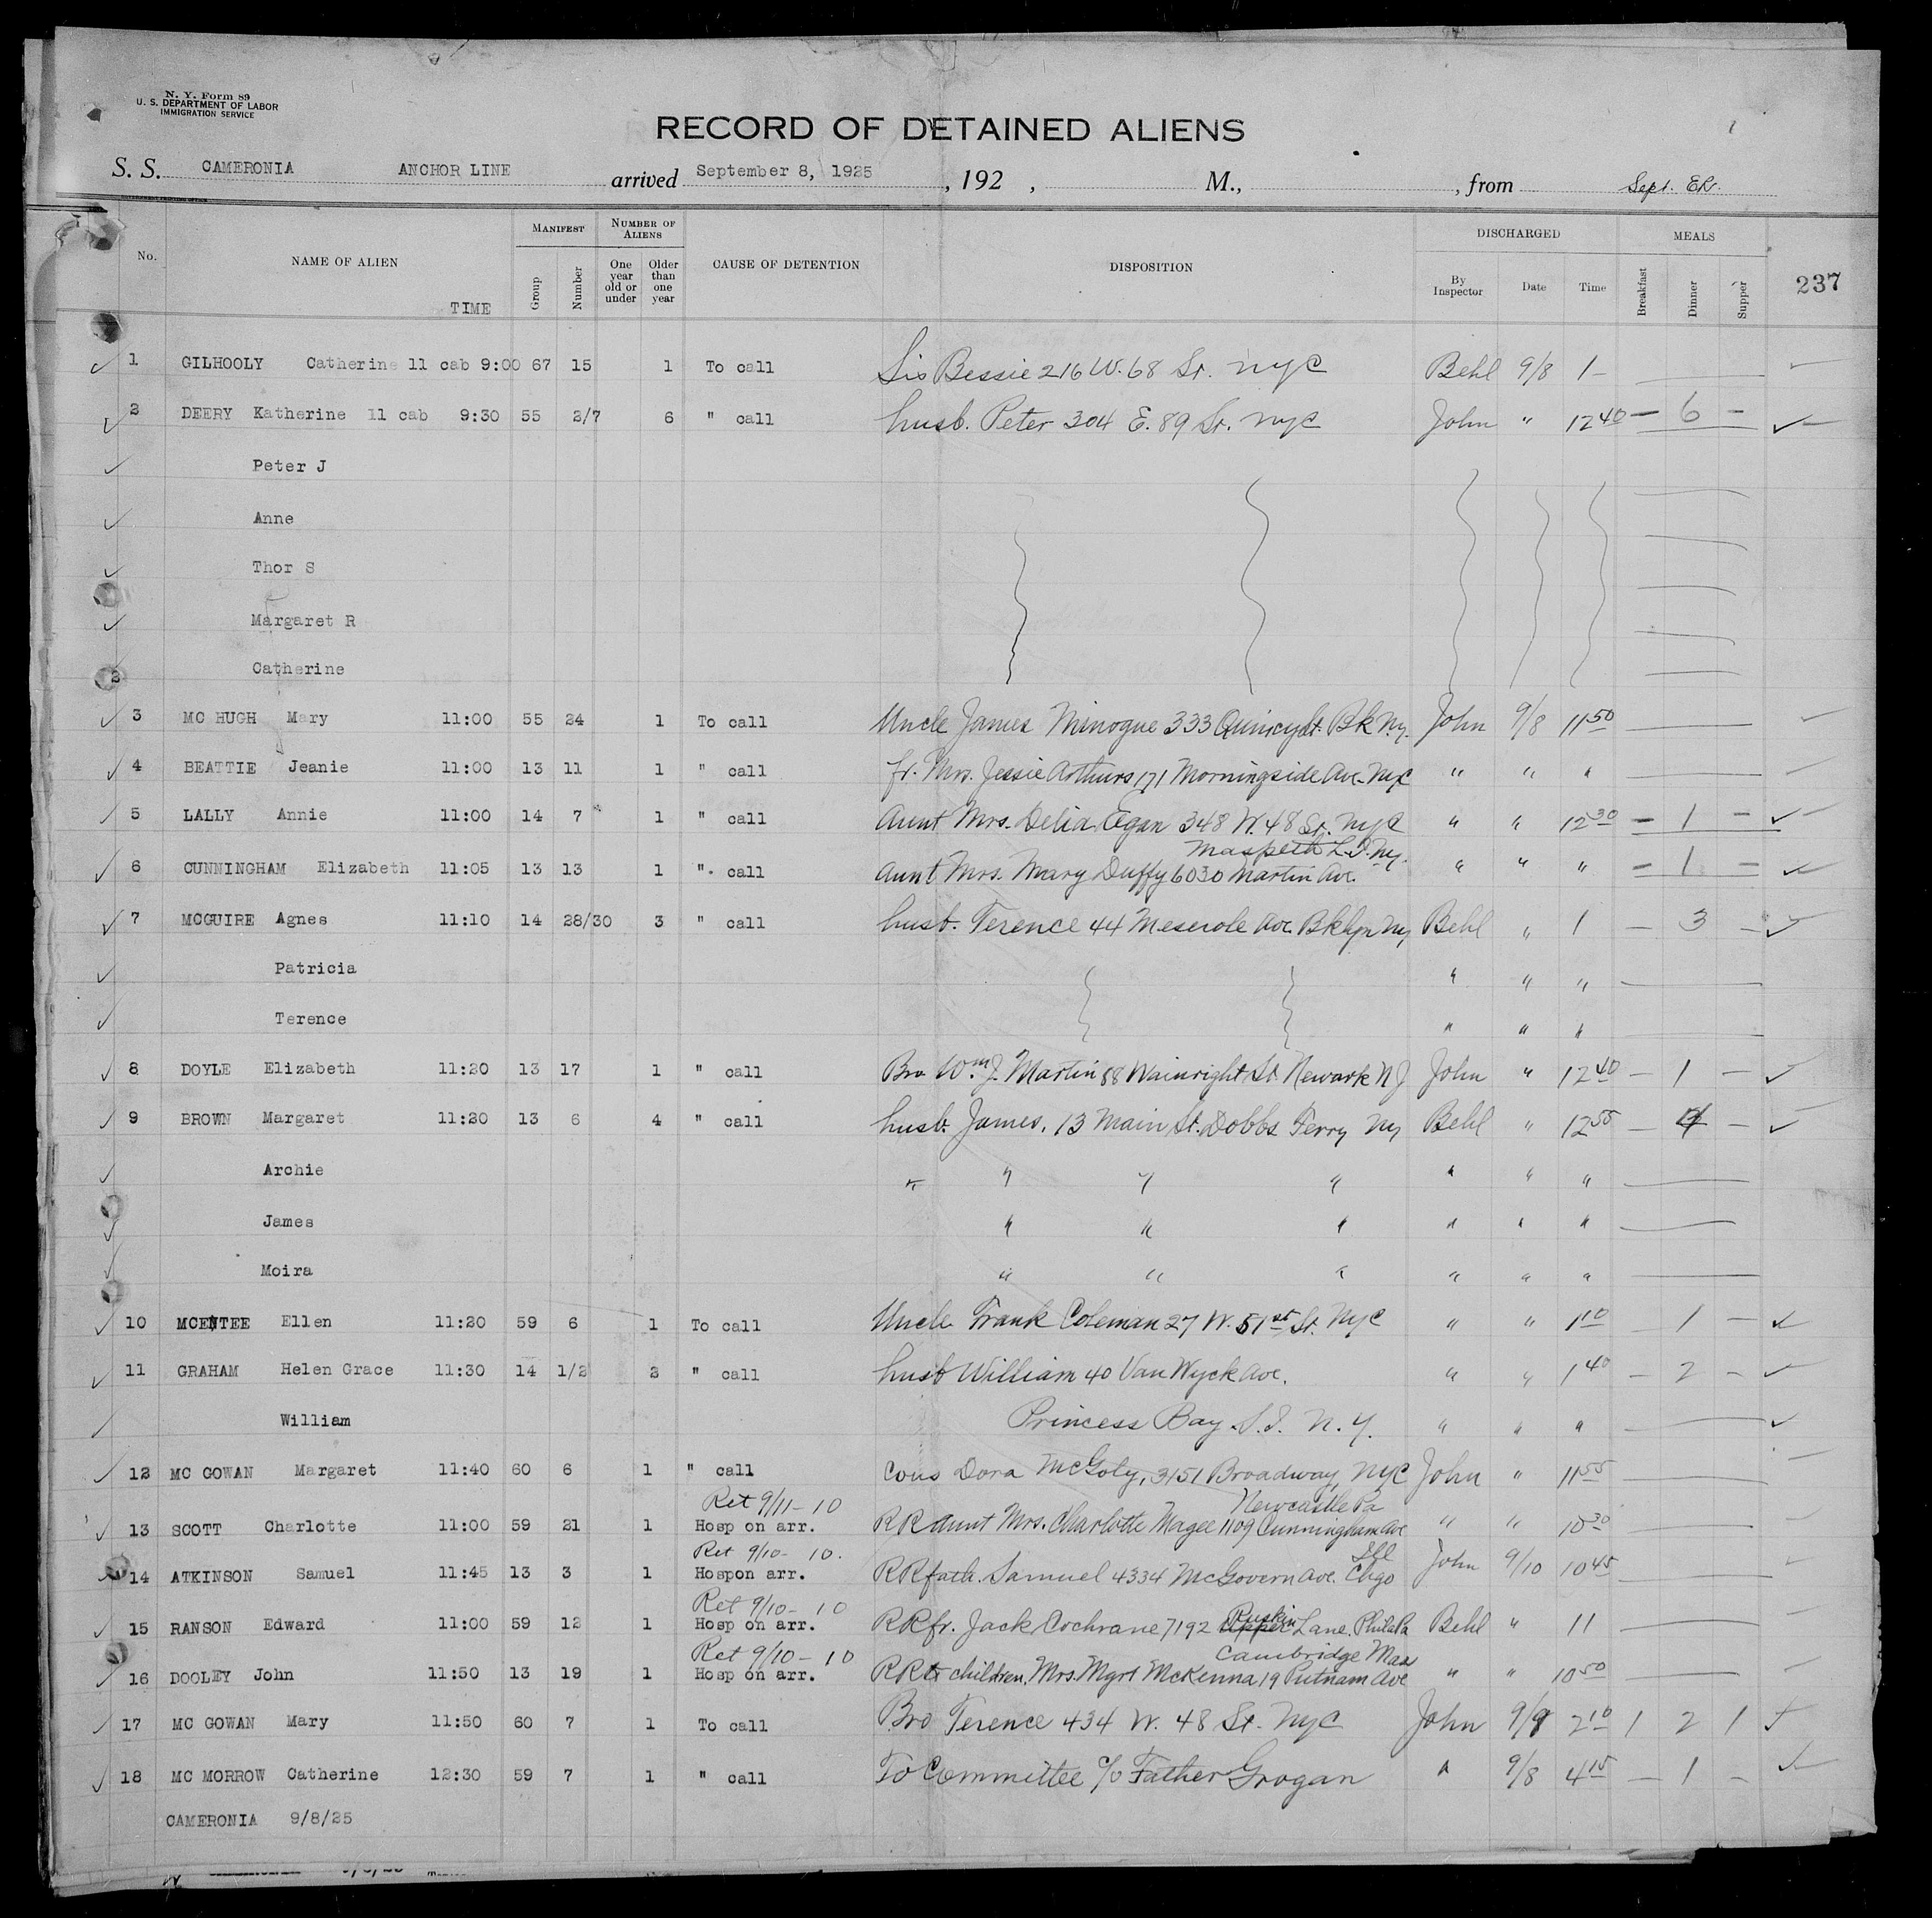 N. Y. Form 89
U. S. DEPARTMENT OF LABOR
IMMIGRATION SERVICE
RECORD OF DETAINED ALIENS
S. S. CAMERONIA ANCHOR LINE arrived September 8, 1925, 192 , M., , from Sept.
No. NAME OF ALIEN TIME MANIFEST Group Number NUMBER OF ALIENS One year old or under Older than one year CAUSE OF DETENTION DISPOSITION DISCHARGED By Inspector Date Time MEALS Breakfast Dinner Supper 237
1 GILHOOLY Catherine 11 cab 9:00 67 15 1 To call Sis Bessie 216 W. 68 St. NYC Behl 9/8 1 —
2 DEERY Katherine 11 cab 9:30 55 2/7 6 " call husb. Peter 304 E. 89 St. NYC John " 12 40 — 6 —
Peter J
Anne
Thor S
Margaret R
2 Catherine
3 MC HUGH Mary 11:00 55 24 1 To call Uncle James Minogue 333 Quincy St. Bk N.Y. John 9/8 11 50
4 BEATTIE Jeanie 11:00 13 11 1 " call fr. Mrs. Jessie Arthurs 171 Morningside Ave. NYC " " "
5 LALLY Annie 11:00 14 7 1 " call Aunt Mrs. Delia Egan 348 W. 48 St. NYC " " 12 30 — 1 —
Maspeth L.I. N.Y.
6 CUNNINGHAM Elizabeth 11:05 13 13 1 " call Aunt Mrs. Mary Duffy 6030 Martin Ave. " " " — 1 —
7 MCGUIRE Agnes 11:10 14 28/30 3 " call husb. Terence 44 Meserole Ave. Bklyn NY Behl " 1 — 3 —
Patricia " " "
Terence " " "
8 DOYLE Elizabeth 11:20 13 17 1 " call Bro Wm J. Martin 88 Wainright St. Newark NJ John " 12 40 — 1 —
9 BROWN Margaret 11:20 13 6 4 " call husb. James, 13 Main St. Dobbs Ferry NY Behl " 12 55 — 4 —
Archie " " " " " " "
James " " " " " "
Moira " " " " " "
10 MCENTEE Ellen 11:20 59 6 1 To call Uncle Frank Coleman 27 W. 51st St. NYC " " 1 10 — 1 —
11 GRAHAM Helen Grace 11:30 14 1/2 2 " call husb William 40 Van Wyck Ave. " " 1 40 — 2 —
William Princess Bay S.I. N.Y. " " "
12 MC GOWAN Margaret 11:40 60 6 1 " call Cous Dora McGoty, 3151 Broadway, NYC John " 11 55
Ret 9/11 - 10 Newcastle Pa
13 SCOTT Charlotte 11:00 59 21 1 Hosp on arr. RR aunt Mrs. Charlotte Magee 1109 Cunningham Ave " " 10 30
Ret 9/10 - 10. Ill
14 ATKINSON Samuel 11:45 13 3 1 Hospon arr. RR fath. Samuel 4334 McGovern Ave. Chgo John 9/10 10 45
Ret 9/10 - 10 Ruskin
15 RANSON Edward 11:00 59 12 1 Hosp on arr. RR fr. Jack Cochrane 7192 Lane. Phila Pa Behl " 11
Ret 9/10 - 10 Cambridge Mass
16 DOOLEY John 11:50 13 19 1 Hosp on arr. RR to children, Mrs. Mgrt McKenna 19 Putnam Ave " " 10 50
17 MC GOWAN Mary 11:50 60 7 1 To call Bro Terence 434 W. 48 St. NYC John 9/9 2 10 1 2 1
18 MC MORROW Catherine 12:30 59 7 1 " call To Committee c/o Father Grogan " 9/8 4 15 — 1 —
CAMERONIA 9/8/25